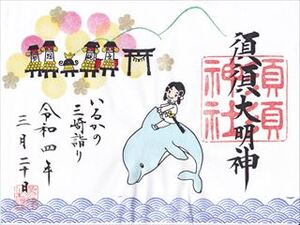 須須大明神
須須
神社
いるかの
三崎詣り
令和四年
三月二十日